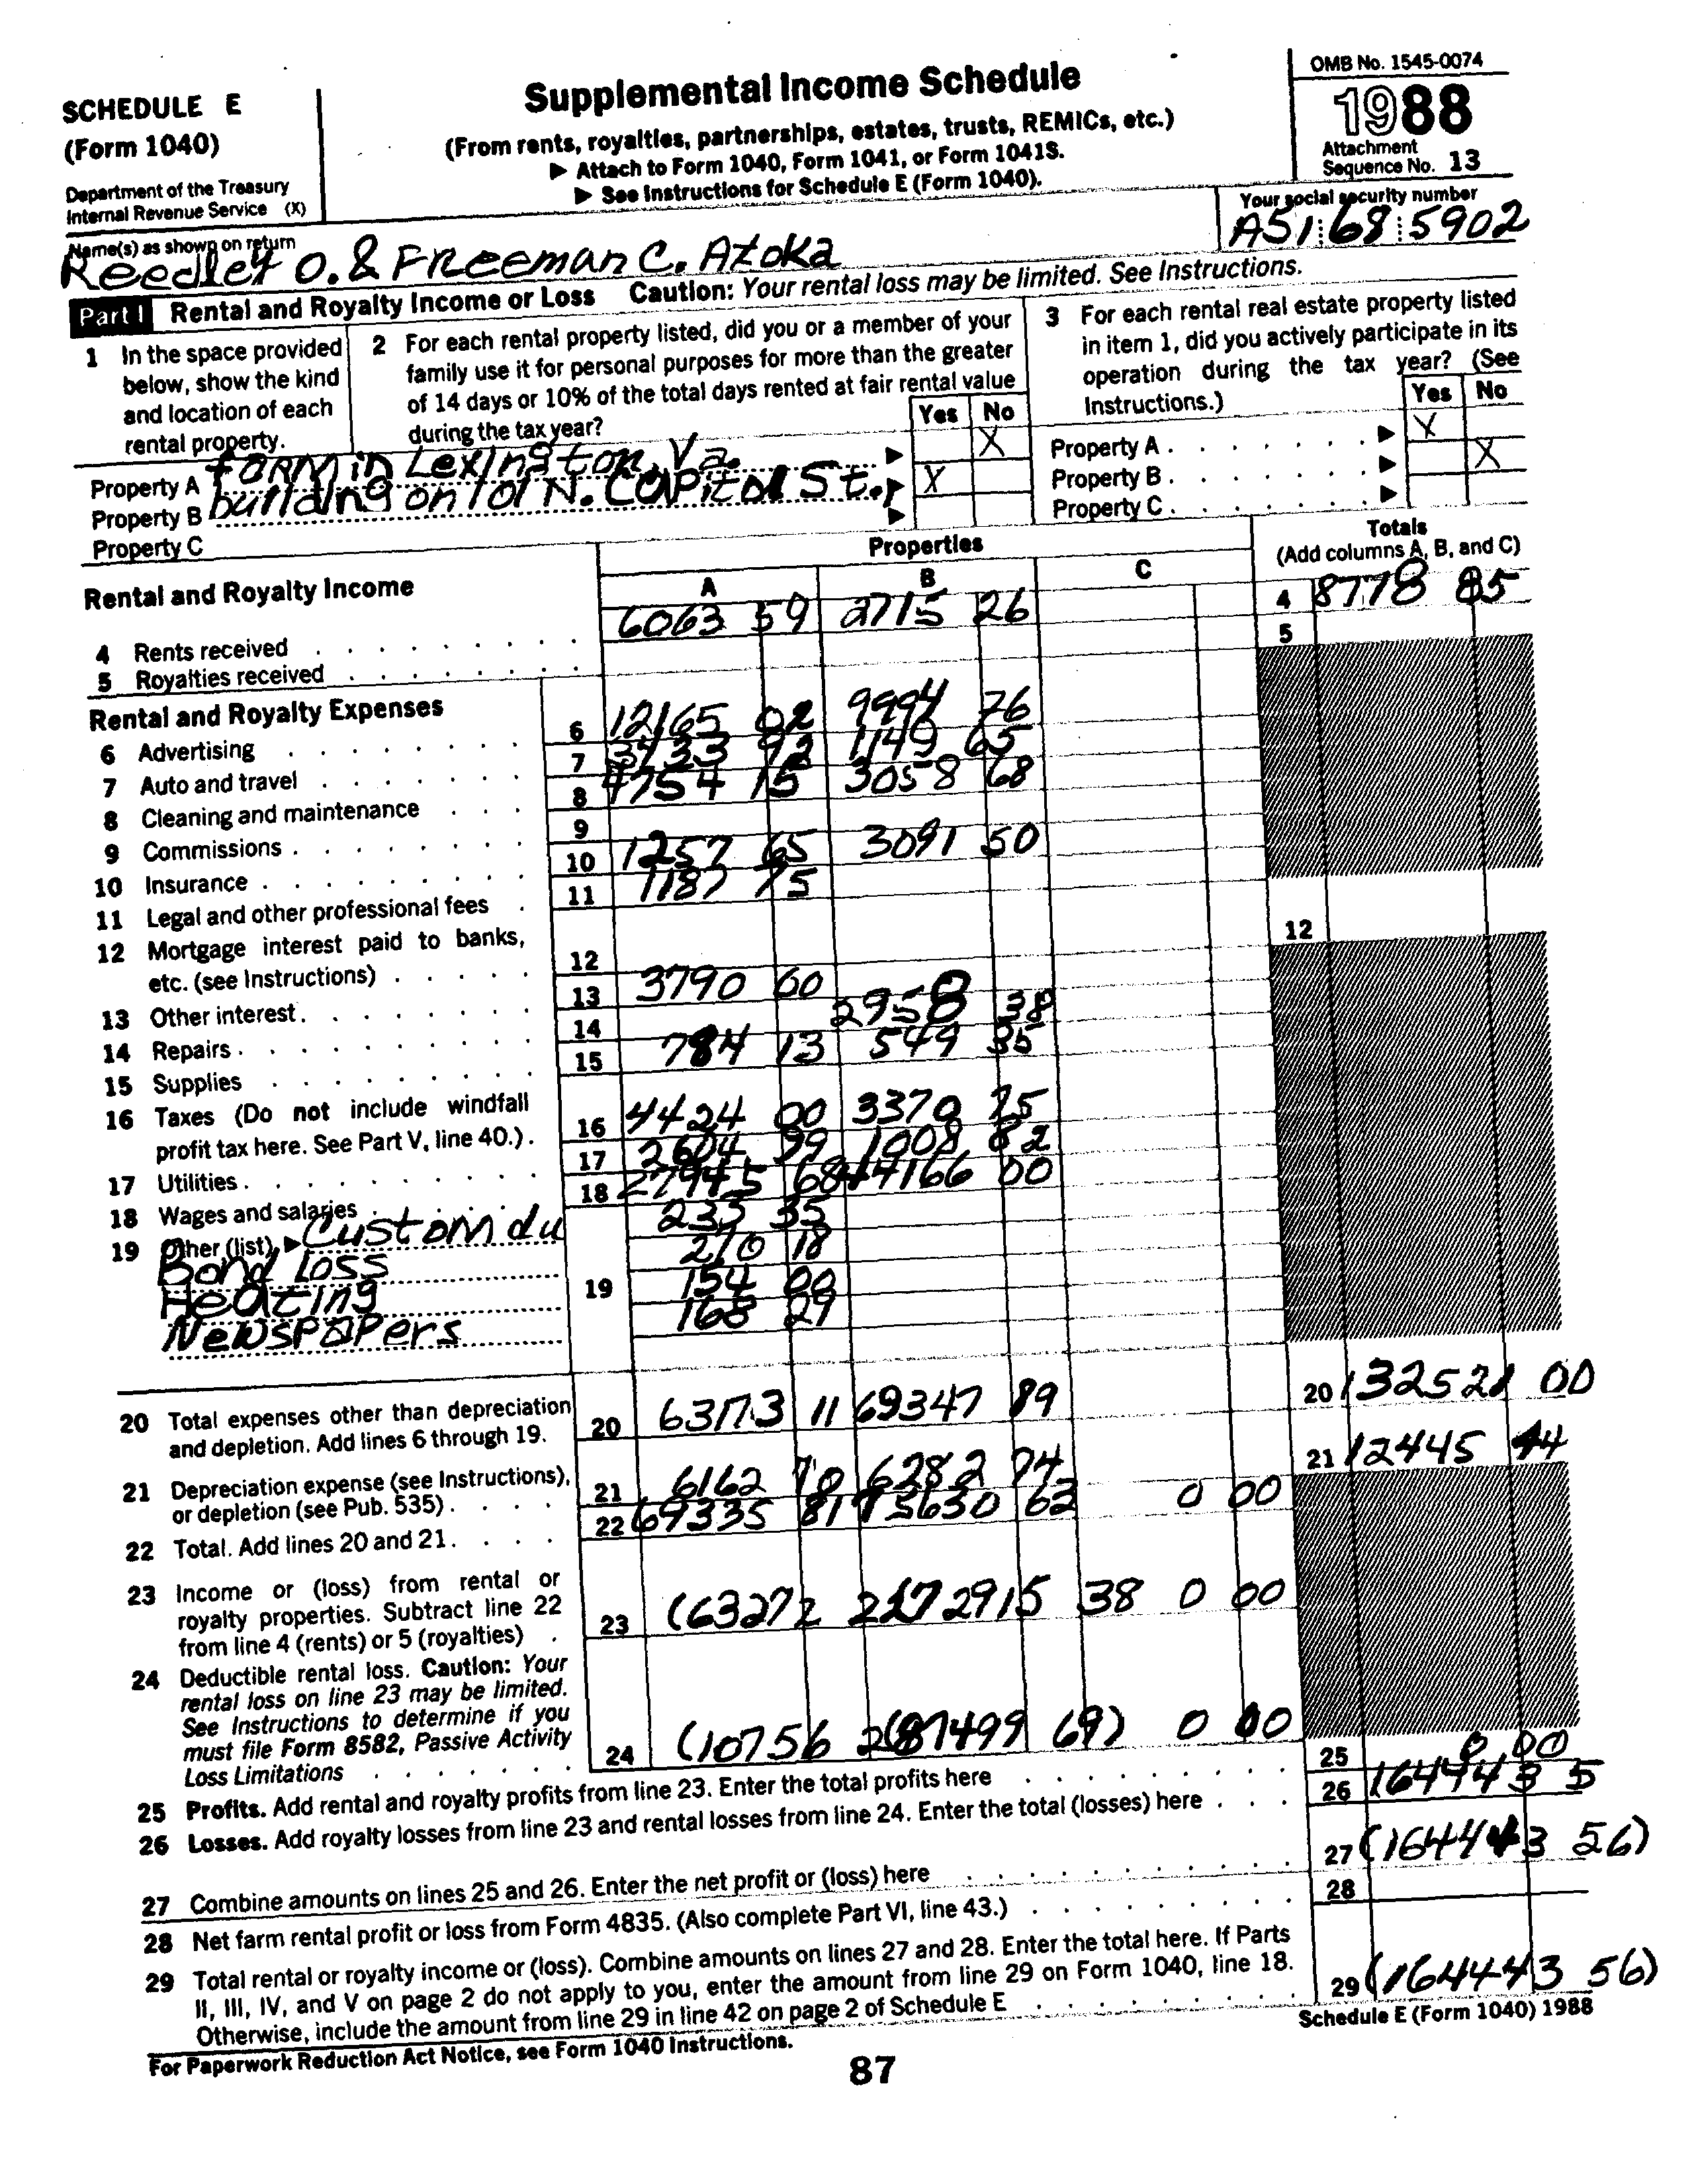 SCHEDULE E
(Form 1040)
Department of the Treasury
Internal Revenue Service (X)
Supplemental Income Schedule
(From rents, royalties, partnerships, estates, trusts, REMICs, etc.)
▶ Attach to Form 1040, Form 1041, or Form 1041S.
▶ See Instructions for Schedule E (Form 1040).
OMB No. 1545-0074
1988
Attachment
Sequence No. 13
Name(s) as shown on return
Reedley O. & Freeman C. Atoka
Your social security number
A51 68 5902
Part I Rental and Royalty Income or Loss Caution: Your rental loss may be limited. See Instructions.
1 In the space provided
below, show the kind
and location of each
rental property.
2 For each rental property listed, did you or a member of your
family use it for personal purposes for more than the greater
of 14 days or 10% of the total days rented at fair rental value
during the tax year?
Yes No
3 For each rental real estate property listed
in item 1, did you actively participate in its
operation during the tax year? (See
Instructions.)
Yes No
Property A farm in Lexington, Va. ▶ X
Property B building on 101 N. Capitol St. ▶ X
Property C ▶
Property A . . . . . . ▶ X
Property B . . . . . . ▶ X
Property C . . . . . . ▶
Rental and Royalty Income
Properties
A B C
Totals
(Add columns A, B, and C)
4 Rents received 6063 59 2715 26 4 8778 85
5 Royalties received 5
Rental and Royalty Expenses
6 Advertising 6 12165 02 9994 76
7 Auto and travel 7 3433 92 1149 65
8 Cleaning and maintenance 8 4754 15 3058 68
9 Commissions 9
10 Insurance 10 1257 65 3091 50
11 Legal and other professional fees 11 1187 75
12 Mortgage interest paid to banks,
etc. (see Instructions) 12 12
13 Other interest 13 3790 00
14 Repairs 14 2958 38
15 Supplies 15 784 13 549 35
16 Taxes (Do not include windfall
profit tax here. See Part V, line 40.) 16 4424 00 3370 75
17 Utilities 17 2604 99 1008 82
18 Wages and salaries 18 27945 68 44166 00
19 Other (list) ▶ Custom du 233 35
Bond Loss 210 18
Heating 19 154 00
Newspapers 168 29
20 Total expenses other than depreciation
and depletion. Add lines 6 through 19. 20 63173 11 69347 89 20 132521 00
21 Depreciation expense (see Instructions),
or depletion (see Pub. 535) 21 6162 70 6282 74 21 12445 44
22 Total. Add lines 20 and 21 22 69335 81 75630 63 0 00
23 Income or (loss) from rental or
royalty properties. Subtract line 22
from line 4 (rents) or 5 (royalties) 23 (63272 22 72915 38 0 00
24 Deductible rental loss. Caution: Your
rental loss on line 23 may be limited.
See Instructions to determine if you
must file Form 8582, Passive Activity
Loss Limitations 24 (10756 2 (87499 69) 0 00
25 Profits. Add rental and royalty profits from line 23. Enter the total profits here 25 0 00
26 Losses. Add royalty losses from line 23 and rental losses from line 24. Enter the total (losses) here 26 164443 5
27 Combine amounts on lines 25 and 26. Enter the net profit or (loss) here 27 (164443 56)
28 Net farm rental profit or loss from Form 4835. (Also complete Part VI, line 43.) 28
29 Total rental or royalty income or (loss). Combine amounts on lines 27 and 28. Enter the total here. If Parts
II, III, IV, and V on page 2 do not apply to you, enter the amount from line 29 on Form 1040, line 18.
Otherwise, include the amount from line 29 in line 42 on page 2 of Schedule E 29 (164443 56)
For Paperwork Reduction Act Notice, see Form 1040 Instructions.
Schedule E (Form 1040) 1988
87